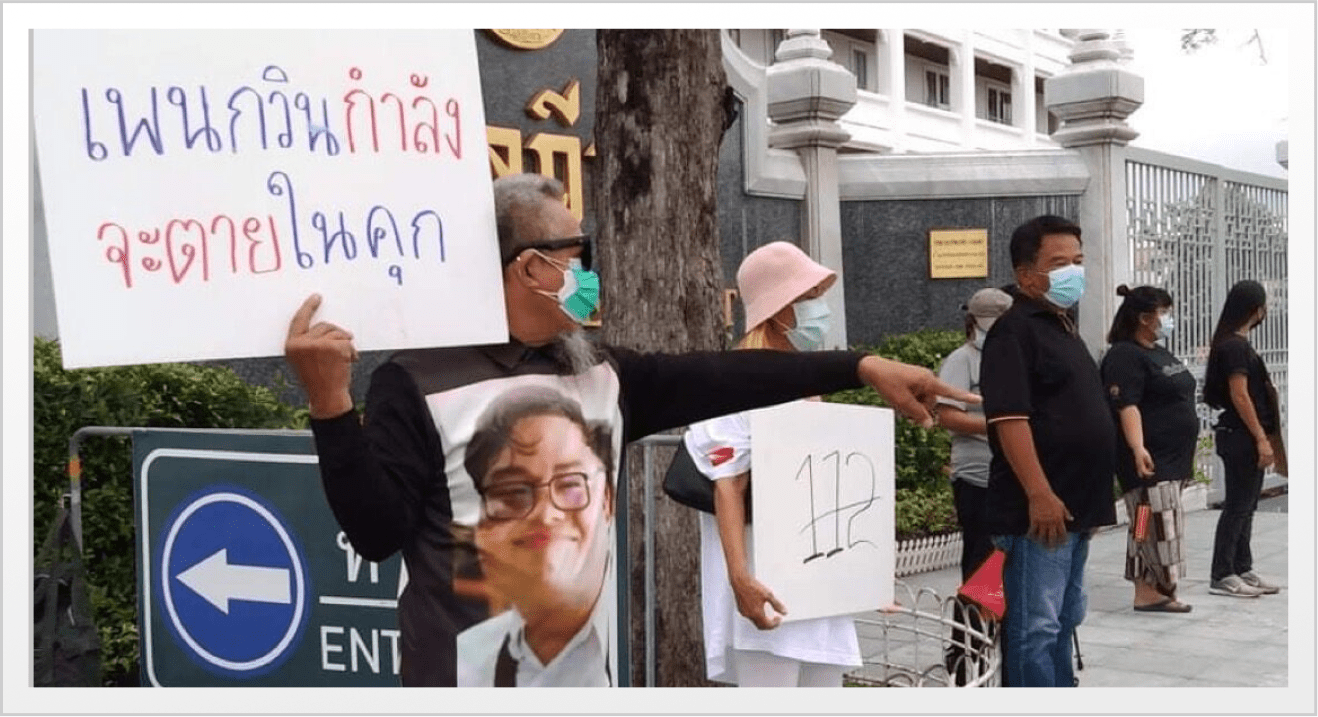 เพนกวินกำลัง
จะตายในคุก
112
ENT